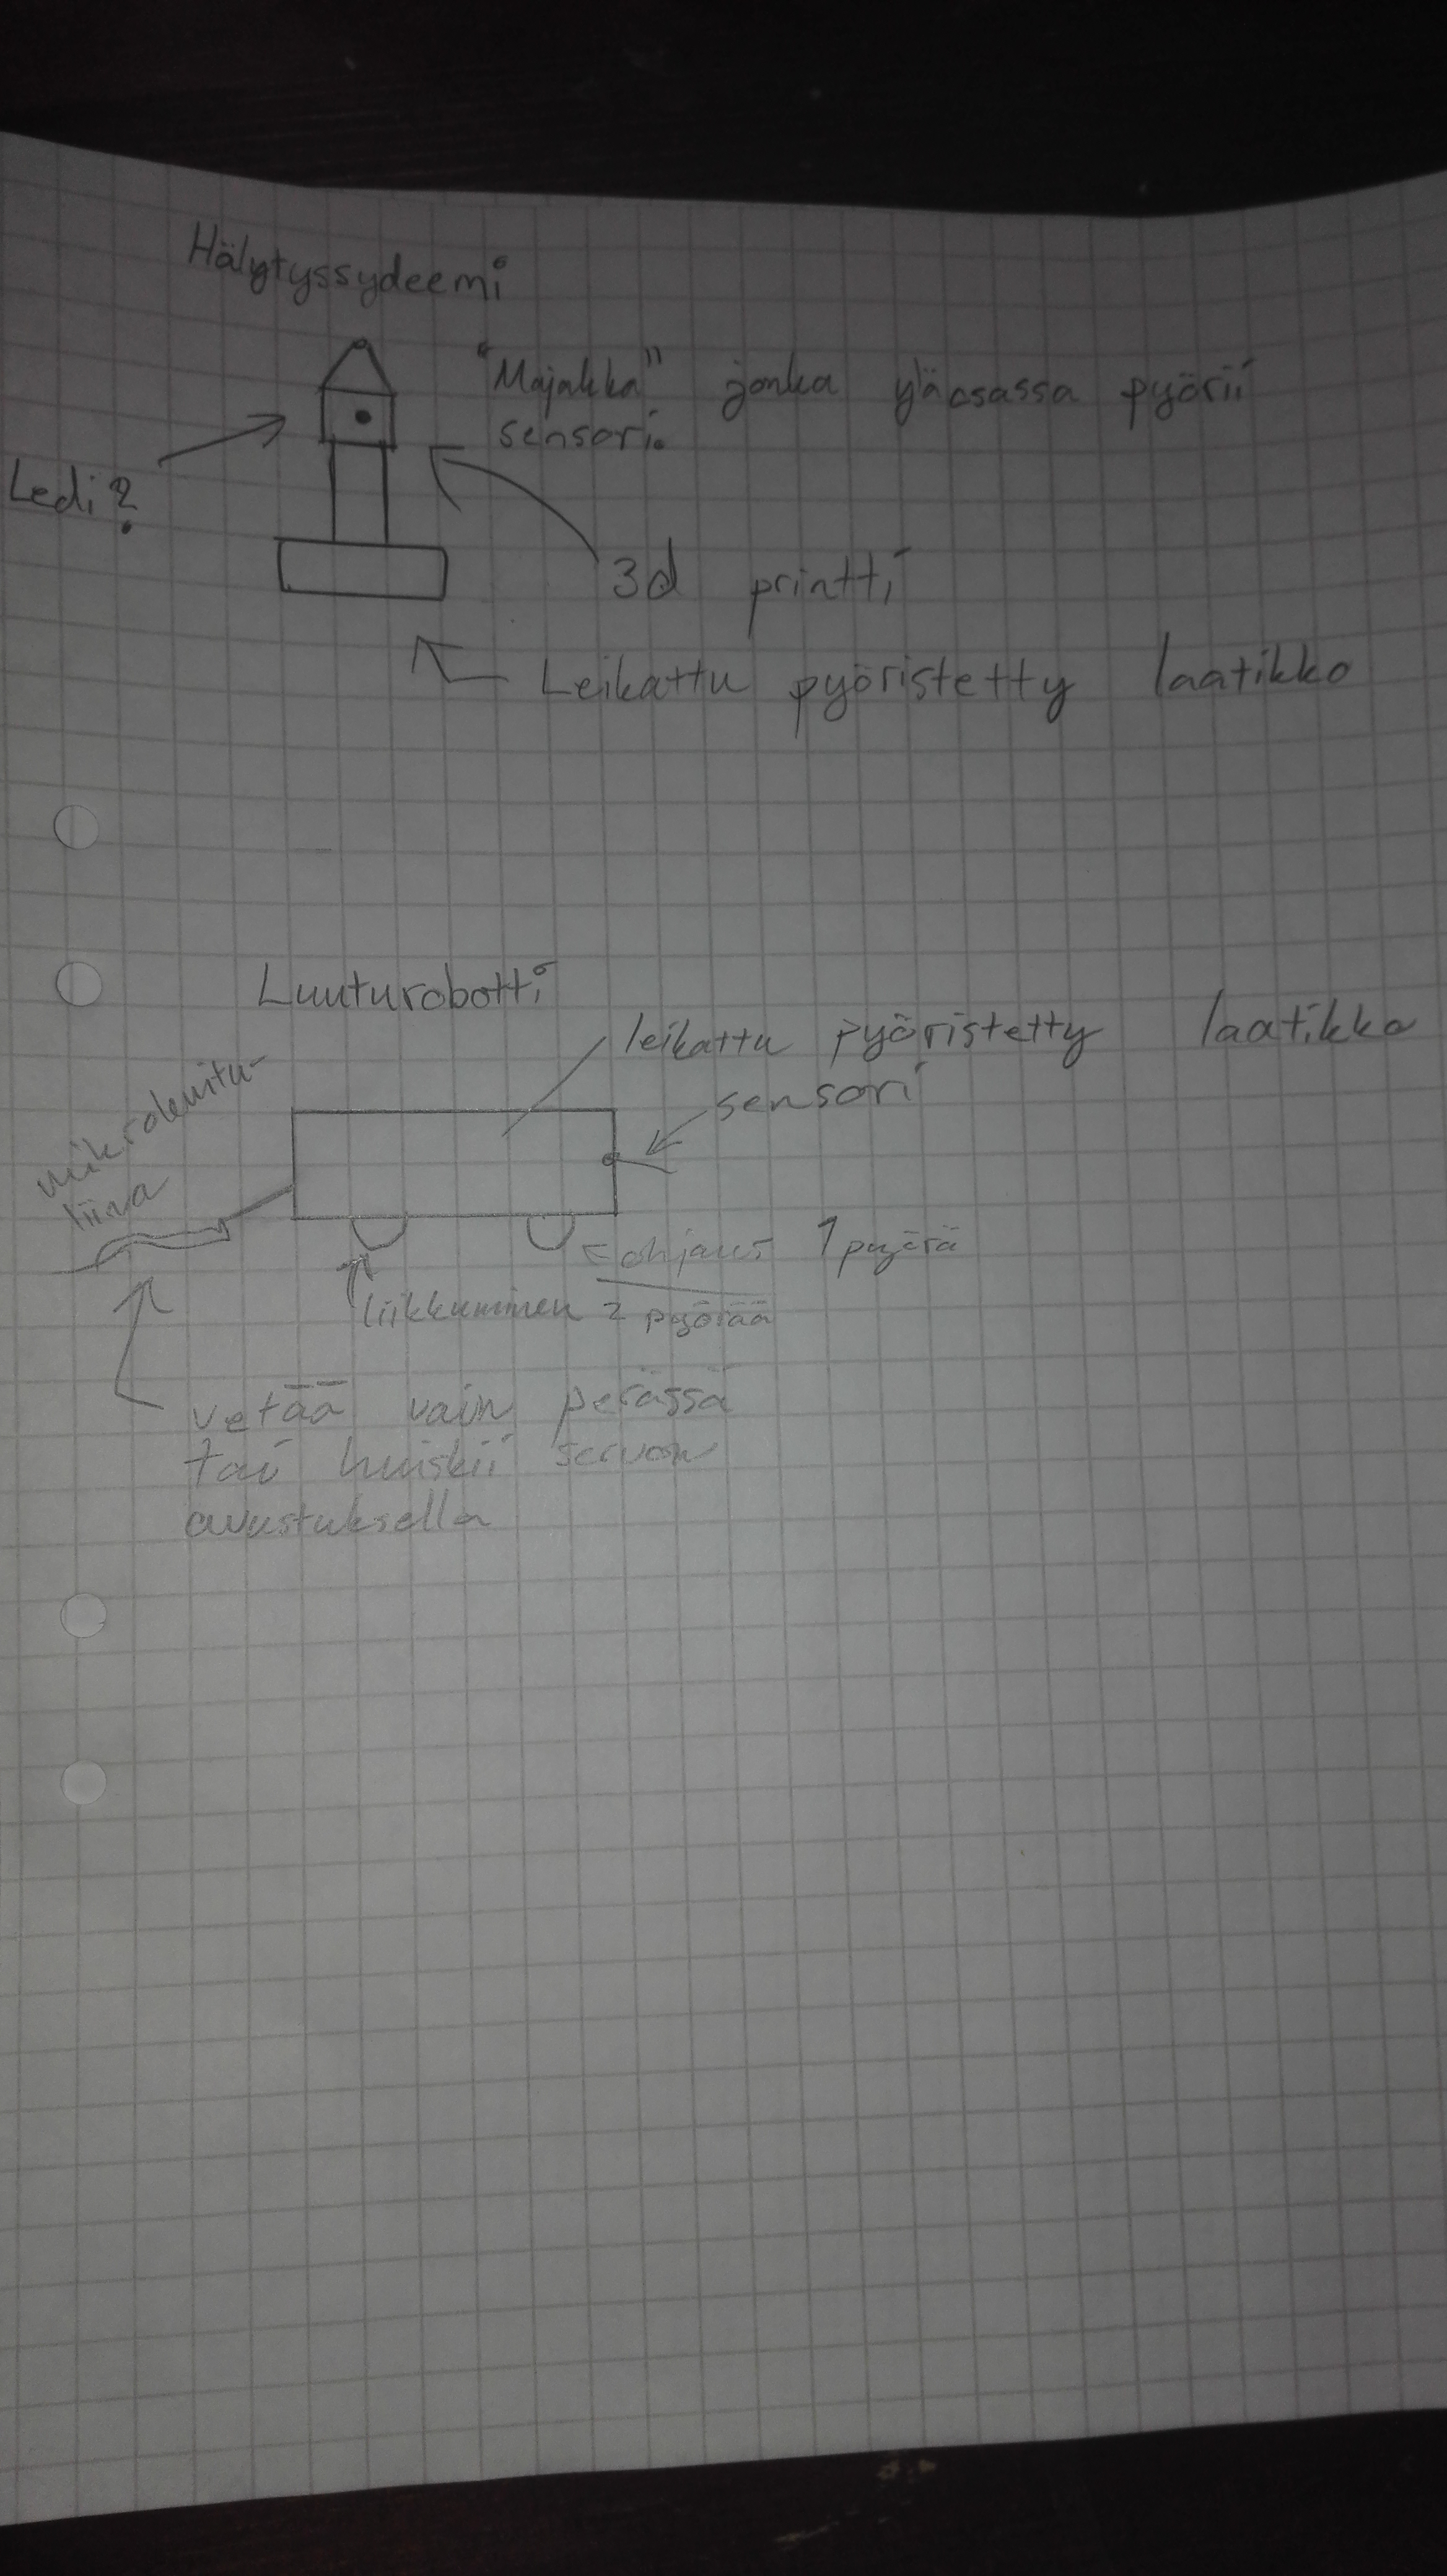 Hälytyssydeemi
"Majakka" jonka yläosassa pyörii
sensori.
Ledi?
3d printti
Leikattu pyöristetty laatikko
Luuturobotti
leikattu pyöristetty laatikko
sensori
mikrokuitu-
liina
ohjaus 1 pyörä
liikkuminen 2 pyörää
vetää vain perässä
tai huiskii servon
avustuksella